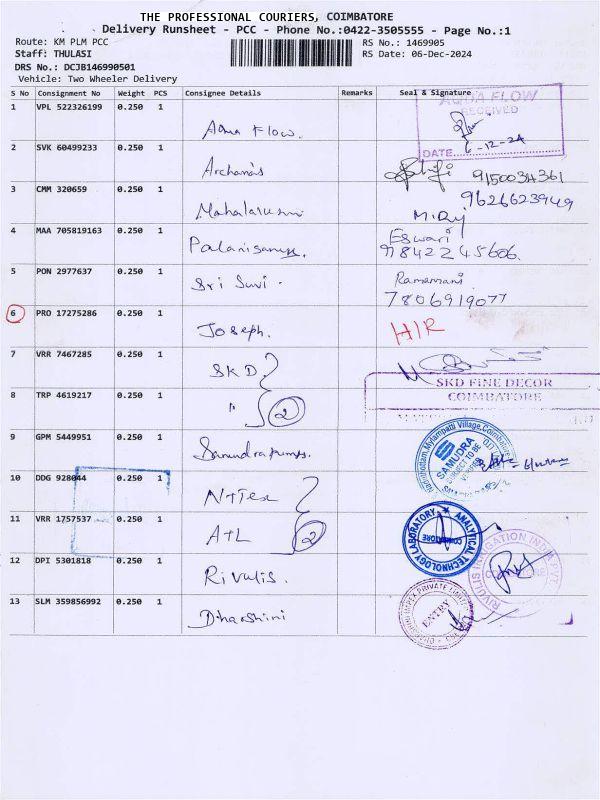 THE PROFESSIONAL COURIERS, COIMBATORE
Delivery Runsheet - PCC - Phone No.:0422-3505555 - Page No.:1
Route: KM PLM PCC
RS No.: 1469905
Staff: THULASI
RS Date: 06-Dec-2024
DRS No.: DCJB146990501
Vehicle: Two Wheeler Delivery
S No Consignment No Weight PCS Consignee Details Remarks Seal & Signature
1 VPL 522326199 0.250 1 Aqua Flow.
AQUA FLOW
RECEIVED
6-12-24
DATE
2 SVK 60499233 0.250 1 Archana's
9150034361
3 CMM 320659 0.250 1 Mahalaxumi
9626623949
4 MAA 705819163 0.250 1 Palanisamy.
Eswari
9784224 5606.
5 PON 2977637 0.250 1 Sri Suvi.
Ramamani
7806919077
6 PRO 17275286 0.250 1 Joseph. H/R
7 VRR 7467285 0.250 1 SKD
8 TRP 4619217 0.250 1 " 2
SKD FINE DECOR
COIMBATORE
9 GPM 5449951 0.250 1
SAMUDRA
SUBJECT TO BE
VERIFIED
10 DDG 928044 0.250 1 N+Tex
11 VRR 1757537 0.250 1 A+L 2
ANALYTICAL TECHNOLOGY LABORATORY
COIMBATORE
12 DPI 5301818 0.250 1 Rivulis.
RIVULIS IRRIGATION INDIA PVT
13 SLM 359856992 0.250 1 Dharshini
IMPEX PRIVATE LIMITED
ENTRY